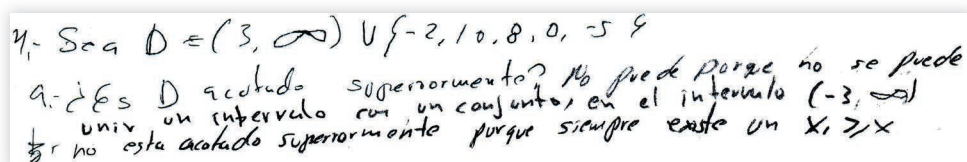 4.- Sea D = (3, ∞) ∪ {-2, 10, 8, 0, -5}
a.- ¿Es D acotado superiormente? No puede porque no se puede
unir un intervalo con un conjunto, en el intervalo (-3, ∞)
no esta acotado superiormente porque siempre existe un X₁ ≥ X